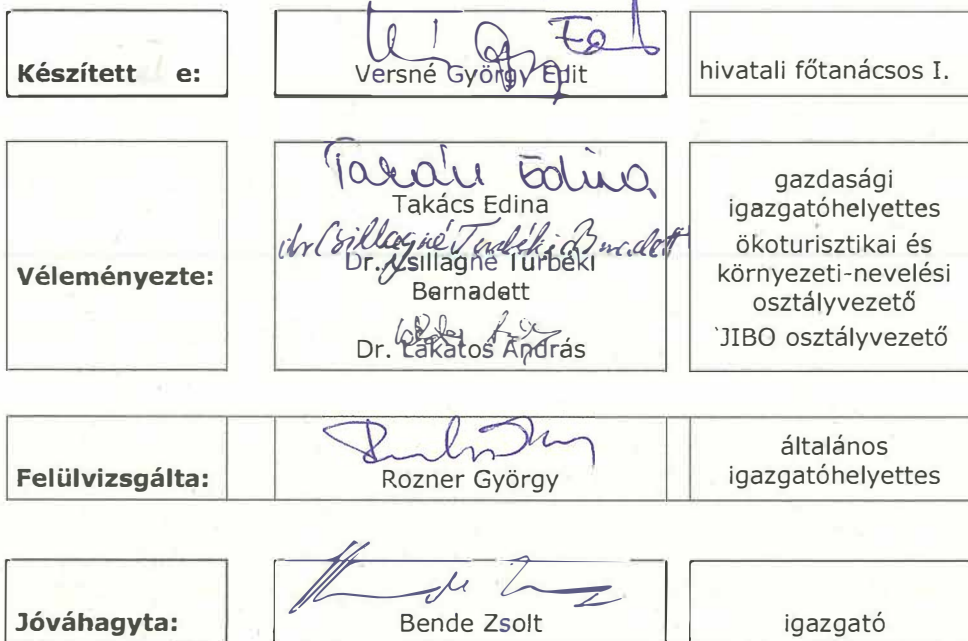 Készített e:
Versné György Edit
hivatali főtanácsos I.
Véleményezte:
Takács Edina
Takács Edina
dr Csillagné Turbéki Bernadett
Dr. Csillagné Turbéki
Bernadett
Dr. Lakatos András
gazdasági
igazgatóhelyettes
ökoturisztikai és
környezeti-nevelési
osztályvezető
JIBO osztályvezető
Felülvizsgálta:
Rozner György
általános
igazgatóhelyettes
Jóváhagyta:
Bende Zsolt
igazgató